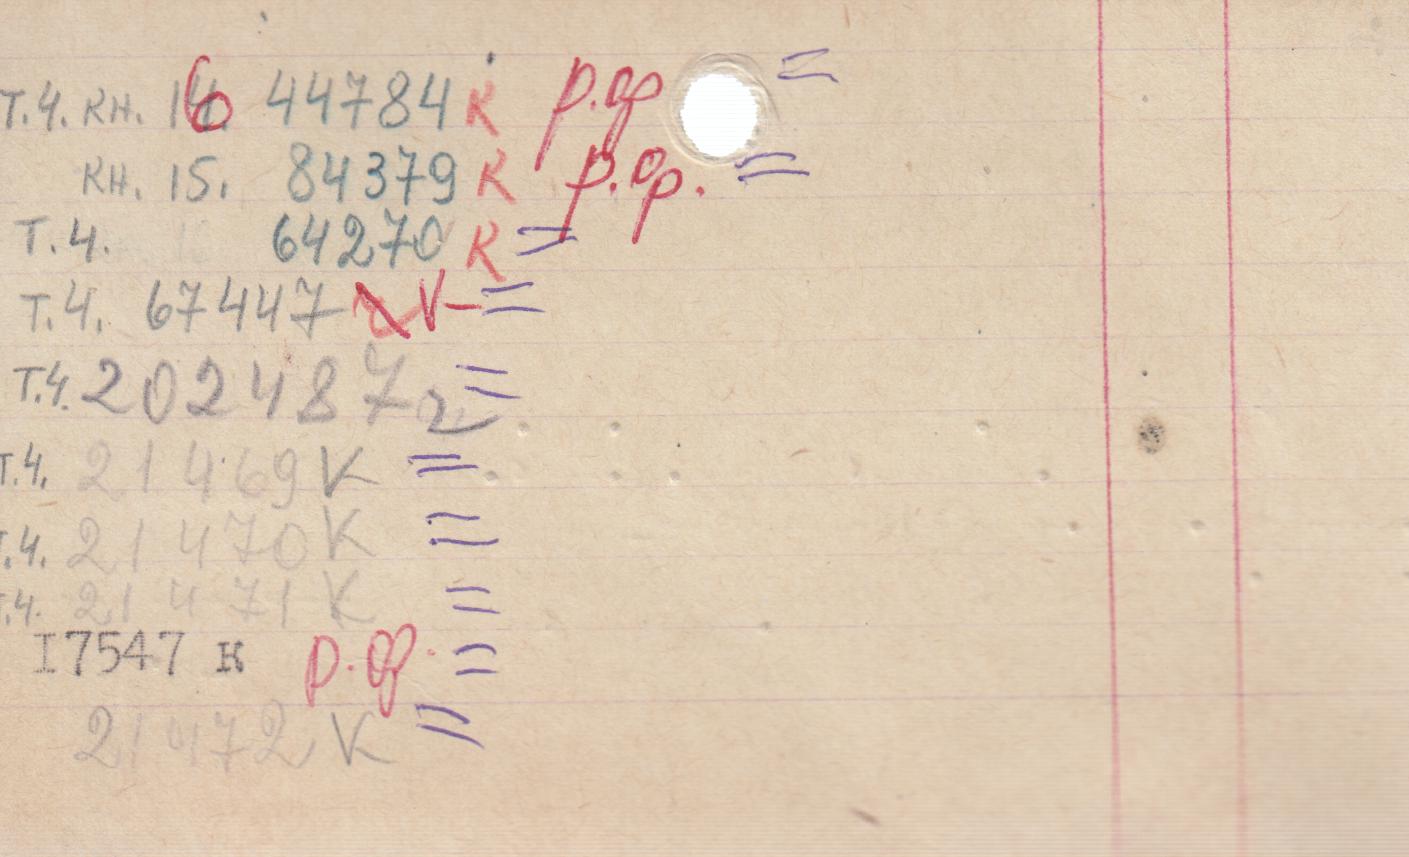 Т.4. кн. 16 44784 К р.ор =
кн. 15. 84379 К р.ор. =
Т.4. 64270 К =
Т.4. 67447 V- =
Т.4. 202487 =
Т.4. 21469 К =
Т.4. 21470 К =
Т.4. 21471 К =
I7547 к р.ор. =
21472 К =